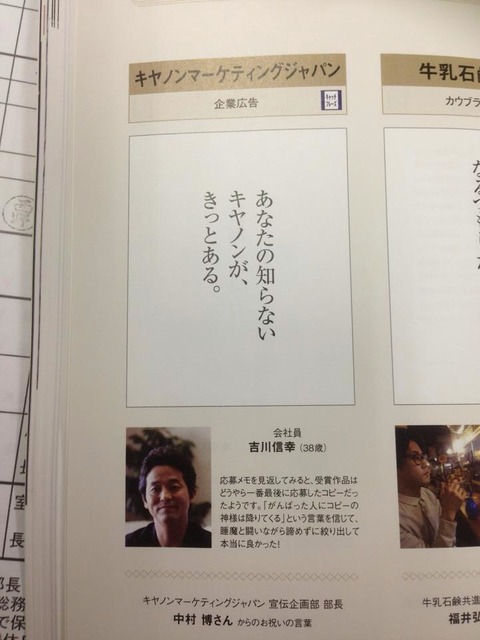 キヤノンマーケティングジャパン
企業広告
キャッチ
フレーズ
あなたの知らない
キヤノンが、
きっとある。
会社員
吉川信幸（38歳）
応募メモを見返してみると、受賞作品は
どうやら一番最後に応募したコピーだっ
たようです。「がんばった人にコピーの
神様は降りてくる」という言葉を信じて、
睡魔と闘いながら諦めずに絞り出して
本当に良かった！
キヤノンマーケティングジャパン 宣伝企画部 部長
中村 博さん からのお祝いの言葉
牛乳石鹸
カウブラ
牛乳石鹸共進
福井弘
室
長
部長
総務
で保